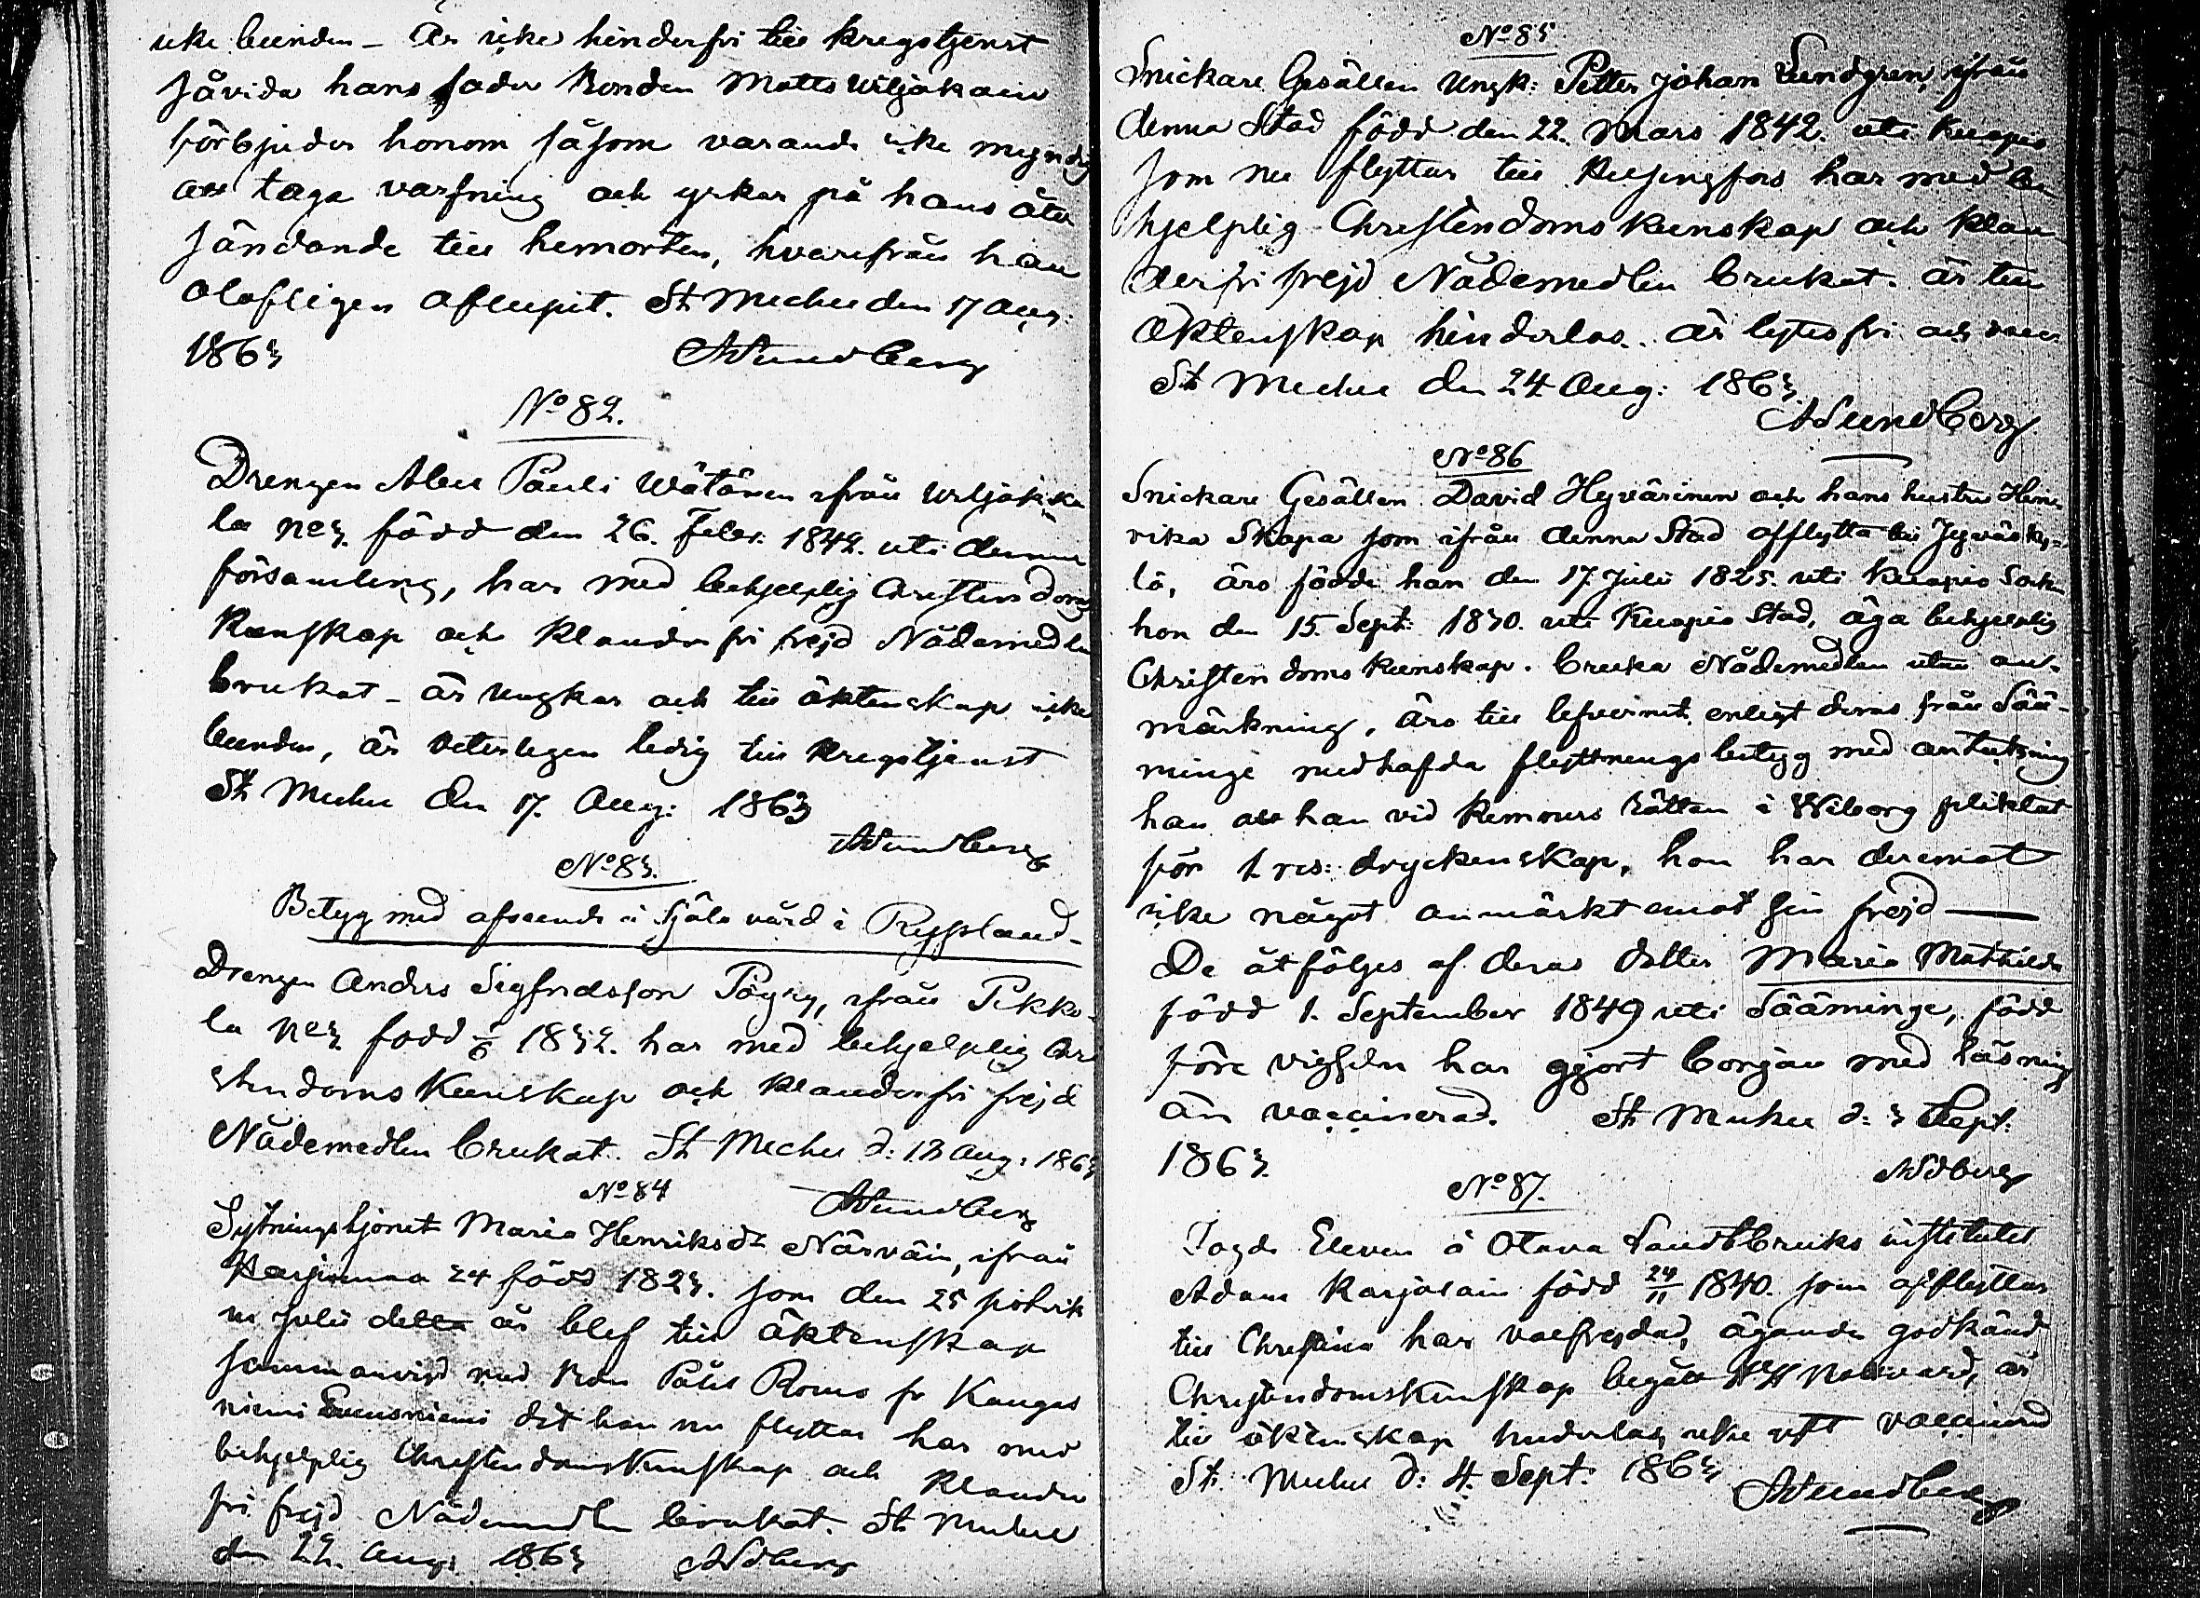 icke bunden – Är icke hinderfri till krigstjenst
såvida hans fader Bonden Matts Wiljakain
förbjuder honom såsom varande icke myndig
att taga värfning och yrkar på hans åter
sändande till hemorten, hvarifrån han
olofligen aflupit. St Michel den 17 Aug:
1863 ASundberg
No 82.
Drengen Abel Påuli Wätänen ifrån Wiljakka
la No 3. född den 26. Febr. 1842. uti denna
församling, har med behjelplig Christendoms
Kunskap och klanderfri frejd Nådemedlen
brukat – är ungkar och till äktenskap icke
bunden, är veterligen ledig till krigstjenst
St Michel den 17. Aug: 1863
ASundberg
No 83.
Betyg med afseende å Själavård i Ryssland –
Drengen Anders Sigfridsson Pöyry, ifrån Pekko-
la No 3. född 1832. har med behjelplig Chri
stendoms Kunskap och klanderfri frejd
Nådemedlen brukat. St Michel d: 18 Aug: 1863
No 84 ASundberg
Sytningshjonet Maria Henriksdr Närväin, ifrån
Harjumaa 24 född 1823. som den 25
Julii detta år blef till äktenskap
sammanvigd med Bon Påhl Roms fr Kangas
niemi dit hon nu flyttar har med
behjelplig Christendomskunskap och klander
fri frejd Nådemedlen brukat. St Michel
den 22. Aug: 1863 ASdberg
No 85
Snickare Gesällen Ungk: Petter Johan Lundgren, ifrån
denna Stad född den 22. Mars 1842. uti Kuopio
som nu flyttar till Helsingfors har med be
hjelplig Christendoms Kunskap och klan
derfri frejd Nådemedlen brukat. är till
Äktenskap hinderlös. är lytesfri och vacc.
St Michel den 24 Aug: 1863.
ASundberg
No 86
Snickare Gesällen David Hyvärinen och hans hustru Hen
rika Skapa som ifrån denna Stad afflytta till Jyväsky-
lä, äro födda han den 17. Juli 1825. uti Kuopio Sock
hon den 15. Sept: 1830. uti Kuopio Stad, äga behjelplig
Christendoms kunskap. bruka Nådemedlen utan an-
märkning, äro till lefvernet enligt deras från Sää-
minge medhafda flyttningsbetyg med anteckning
han att han vid Kemners Rätten i Wiborg pliktat
för 1 res: dryckenskap, hon har deremot
icke något anmärkt emot sin frejd —
De åtföljes af deras dotter Maria Mathilda
född 1. September 1849 uti Sääminge, född
före vigseln har gjort början med läsning
är vaccinerad. St Michel d: 3 Sept:
1863. ASdberg
No 87.
Jagds Eleven å Otava Landtbruks institutet
Adam Karjalain född 24/11 1840. som afflyttar
till Christina har välfrejdad, ägande godkänd
Christendomskunskap begått HH Nattvard, är
till äktenskap hinderlös, vaccinerad
St: Michel d: 4. Sept: 1863
ASundberg